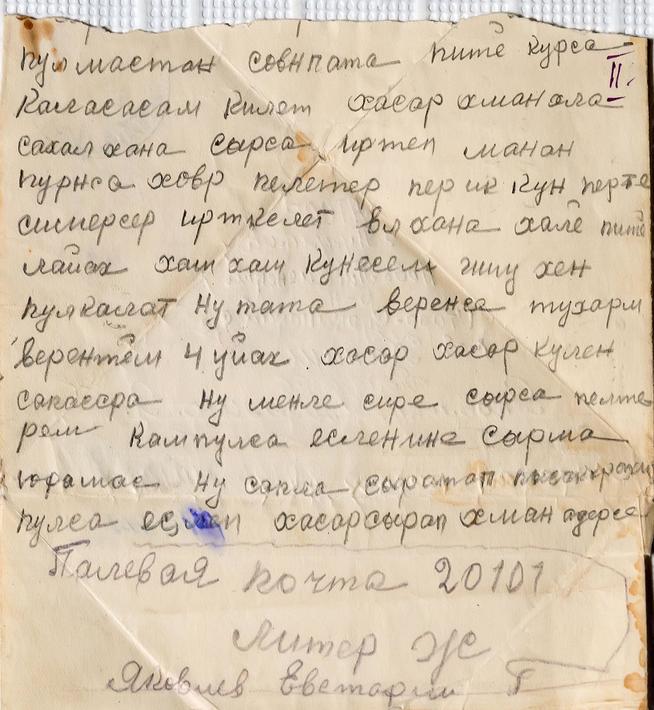 пулмастан совнпата пите курса
II.
каласасам килет хасар хманала
сахал хана сырса иртеп манан
пурнса ховр пелетер пер ик кун перте
сисперсер иртхелет вл хана хале пите
лайах хаш хаш кунесем шу хен
пулкалат ну тата веренсе тухарм
верентем 4 уйах хасар хасар кулен
сапассра ну менле сире сырса пелте
рем кампулса есленине сырма
юрамас ну сапла сыратап
пулса хасарсырап хман адреса
Палевая почта 20101
литер Ж
Яковлев Евстафи Г